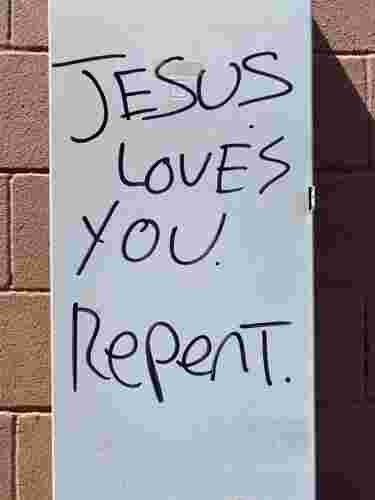 JESUS
LOVES
YOU.
Repent.